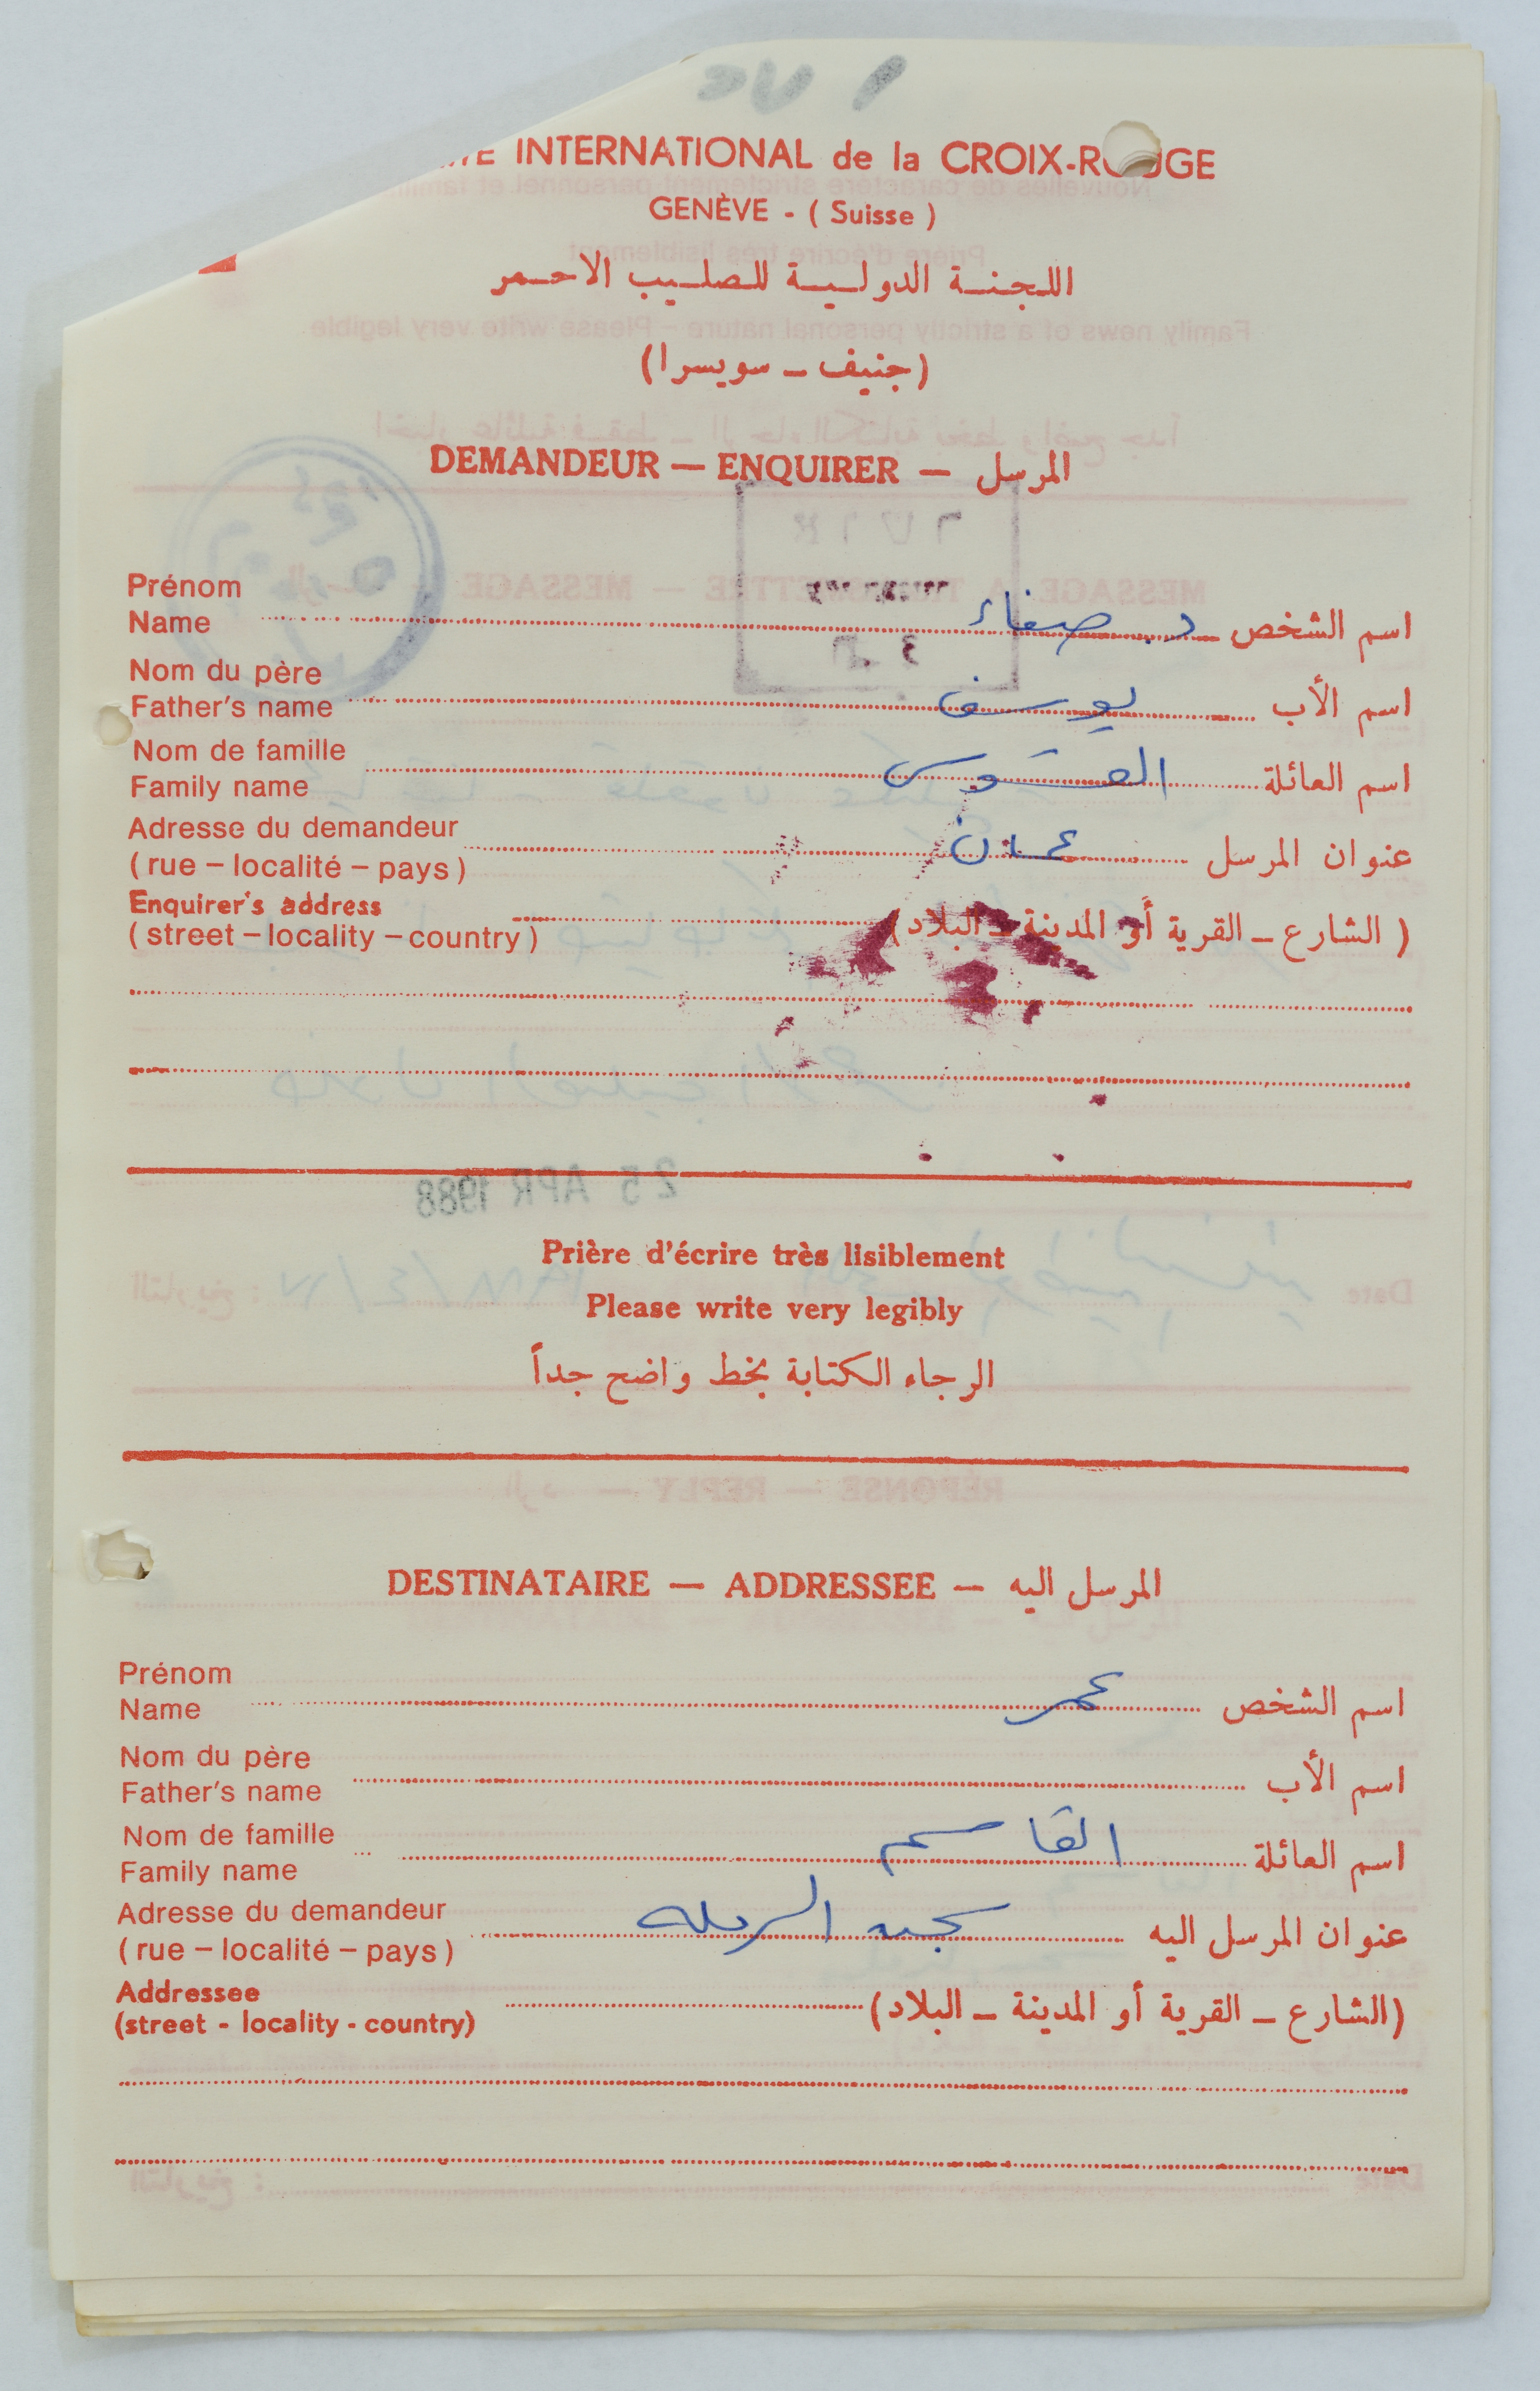 INTERNATIONAL de la CROIX-ROUGE
GENÈVE - ( Suisse )
اللجنة الدولية للصليب الاحمر
(جنيف - سويسرا)
DEMANDEUR — ENQUIRER — المرسل
Prénom
Name د. صفاء اسم الشخص
Nom du père
Father's name يوسف اسم الأب
Nom de famille
Family name اسم العائلة
Adresse du demandeur
( rue – localité – pays ) عمان عنوان المرسل
Enquirer's address
( street – locality – country ) ( الشارع - القرية أو المدينة - البلاد )
25 APR 1988
Prière d'écrire très lisiblement
Please write very legibly
الرجاء الكتابة بخط واضح جداً
DESTINATAIRE — ADDRESSEE — المرسل اليه
Prénom
Name عمر اسم الشخص
Nom du père
Father's name اسم الأب
Nom de famille
Family name القاسم اسم العائلة
Adresse du demandeur
( rue – localité – pays ) سجن الرمله عنوان المرسل اليه
Addressee
(street - locality - country) (الشارع - القرية أو المدينة - البلاد)